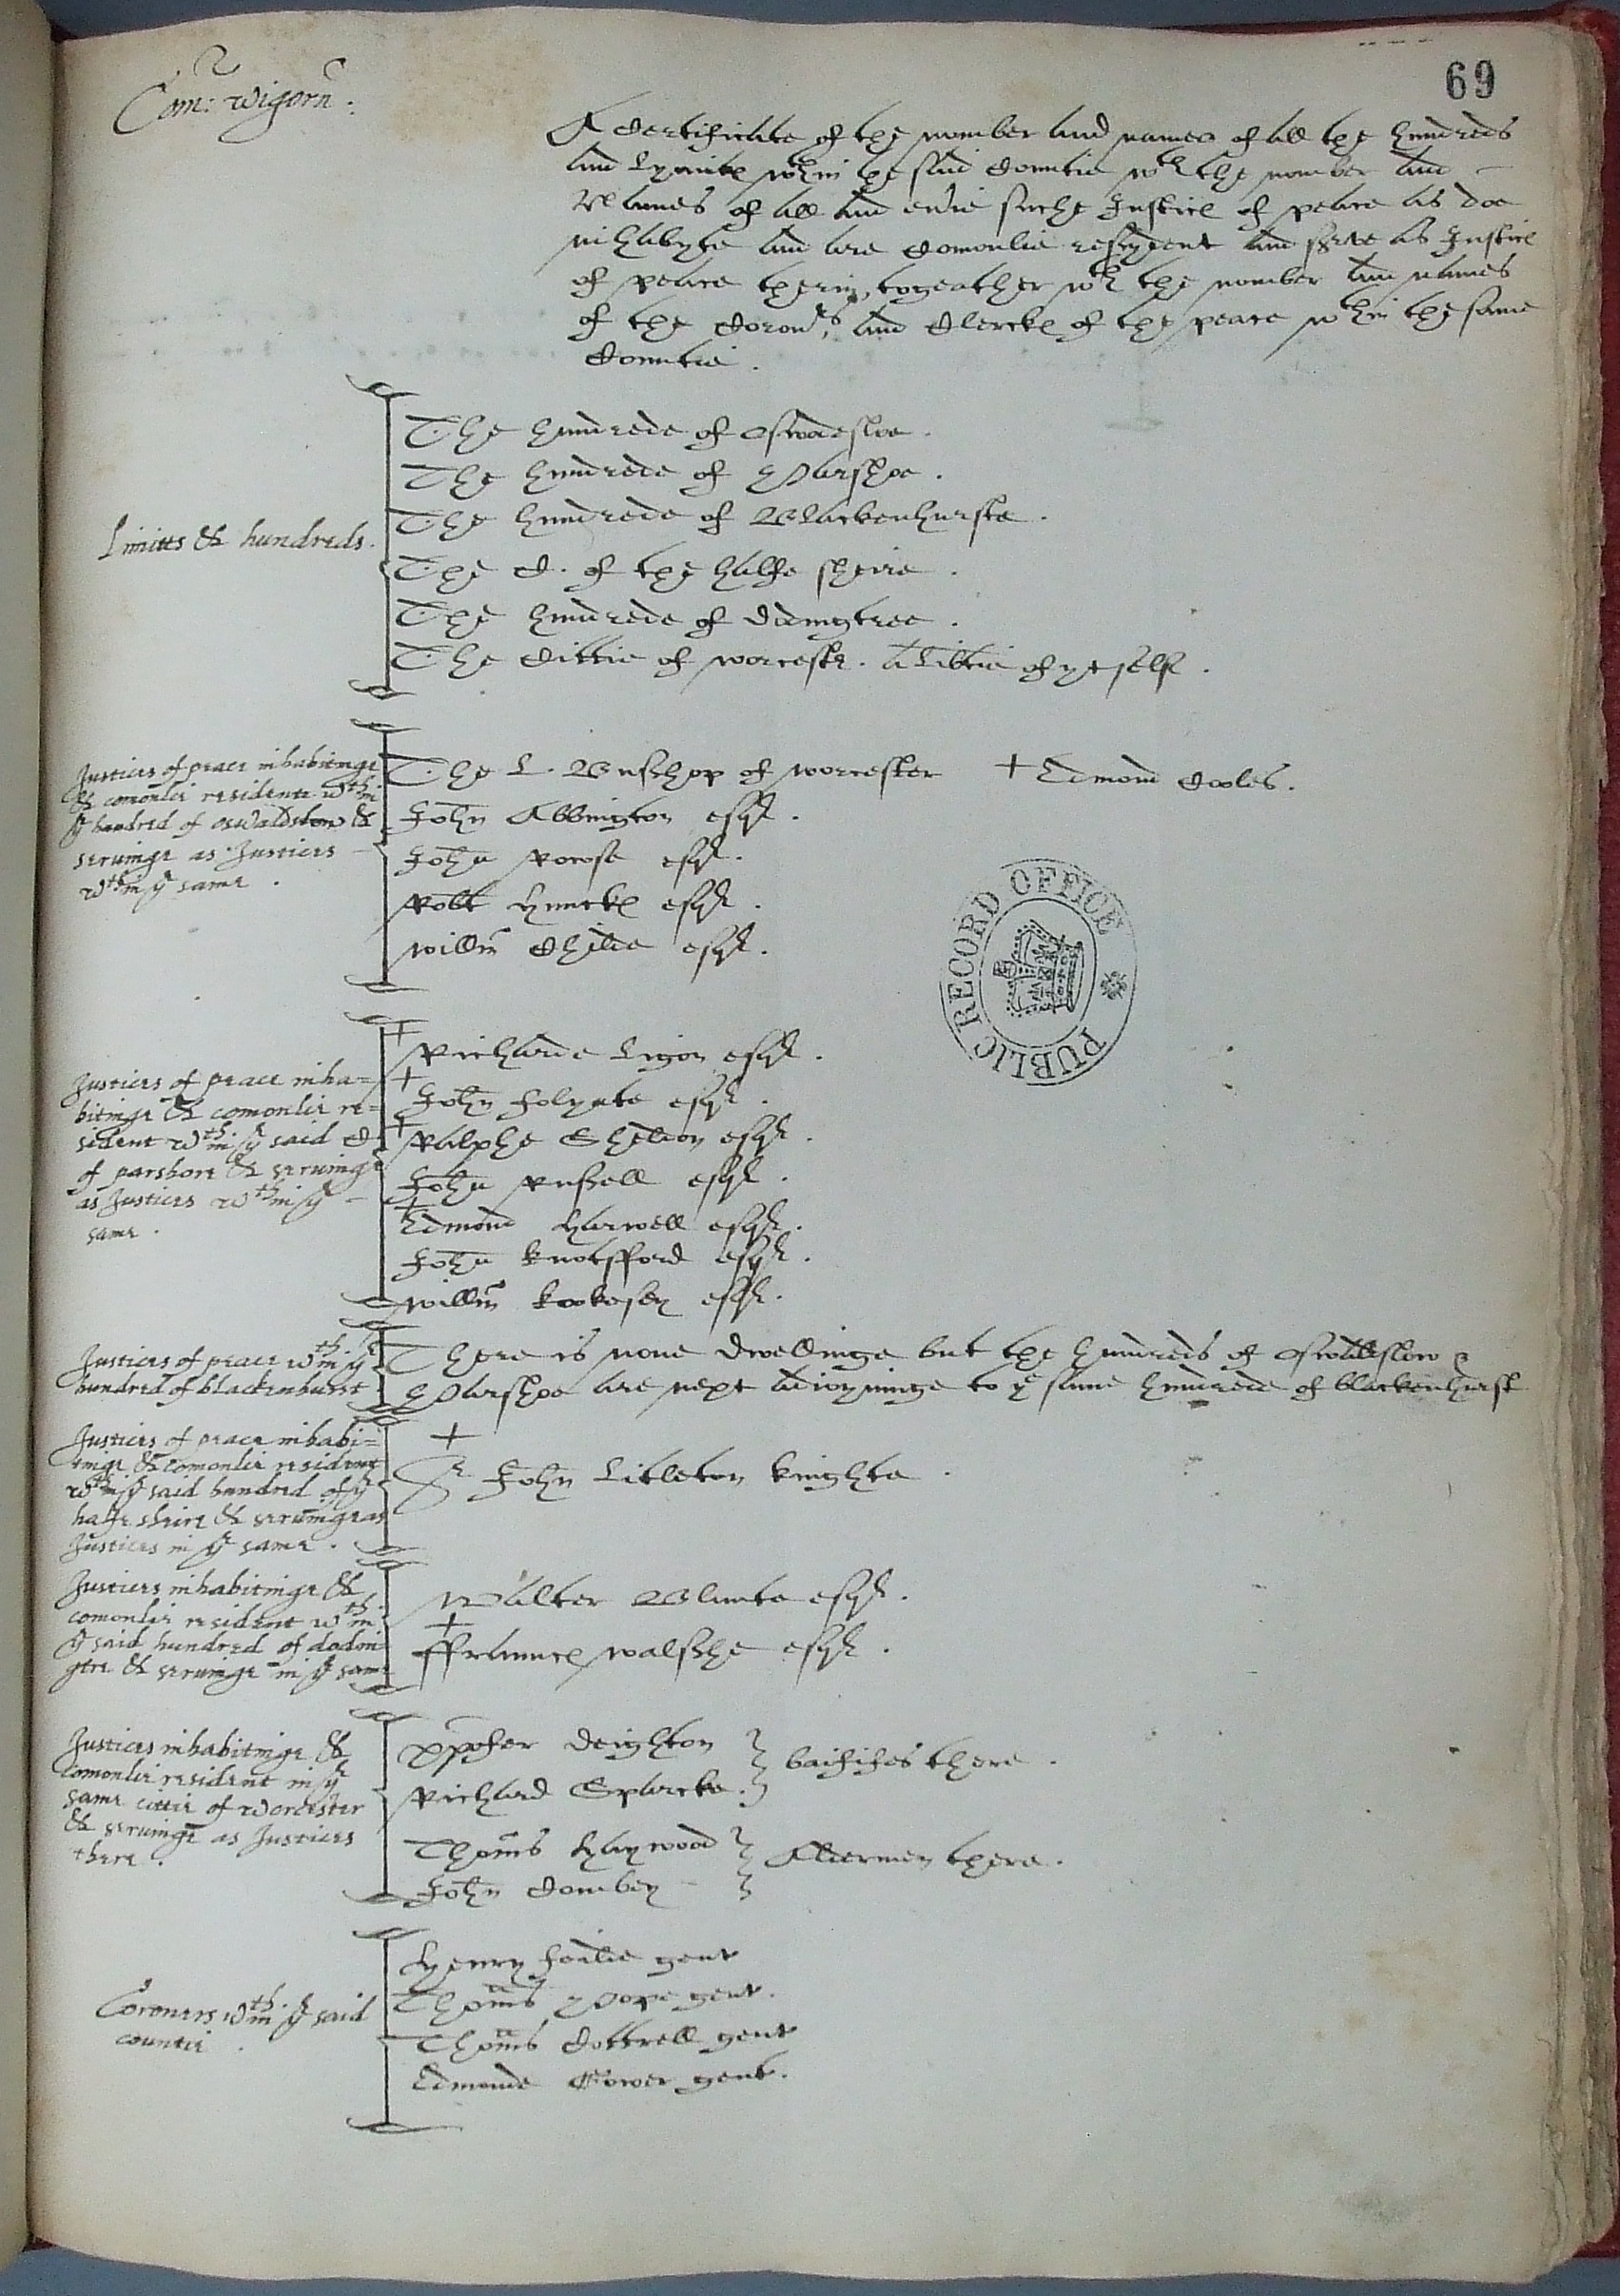 69
Com: Wigorn:
A Certificate of the nomber and names of all the hundreds
and Lymitℯ wthin the said Countie wth the nomber and
Names of all and eũie suche Justicℯ of peace as doe
inhabyte and are Comonlie resydent and s̃ve as Justicℯ
of peace therin, togeather wth the nomber and names
of the Corons, and Clerckℯ of the peace wthin the same
Countie.
Limitts & hundreds.
The hundrede of Oswdesloe.
The hundrede of Parshoe.
The hundrede of Blackenhurste.
The C. of the halfe sheire.
The hundrede of Dodingtree.
The Cittie of Worcestr. a Libtie of yt self.
Justices of peace inhabitinge
& comonlie residente wthin
ye hundred of oswaldslow &
seruinge as Justices
wthin ye same.
The L. Busshop of Worcester + Edmond Coles.
John Abbington esqr.
John Rowse esqr.
Robt Hunckℯ esqr.
Willm̃ Childe esqr.
PUBLIC RECORD OFFICE
Justices of peace inha=
bitinge & comonlie re=
sident wthin ye said C
of parshore & seruinge
as Justices wthin ye
same.
+ Richarde Ligon esqr.
+ John Folyate esqr.
+ Ralphe Sheldon esqr.
John Russell esqr.
+ Edmond Harwell esqr.
John Knotsfford esqr.
Willm̃ Kookesey esqr.
Justices of peace wthin ye
hundred of blackenhurst
There is none dwellinge but the hundreds of Oswaldslow &
Parshoe are next adioyninge to ye same hundrede of blackenhurst
Justices of peace inhabi=
tinge & comonlie resident
wthin ye said hundred of ye
halfe sheire & seruinge as
Justices in ye same.
+
Sr John Litleton knighte.
Justices inhabitinge &
comonlie resident wthin
ye said hundred of dodin
gtre & seruinge in ye same
Walter Blunte esqr.
+
ffrauncℯ Walsshe esqr.
Justices inhabitinge &
comonlie resident in ye
same cittie of Worcester
& seruinge as Justices
there.
Xpofer Deighton
Richard Sparcke. } baififes there.
Thoms̃ Haywood
John Combey } Aldermen there.
Coroners wthin ye said
countie.
Henry Feilde gent
Thoms̃ Pope gent.
Thoms̃ Cottrell gent
Edmonde Gower gent.